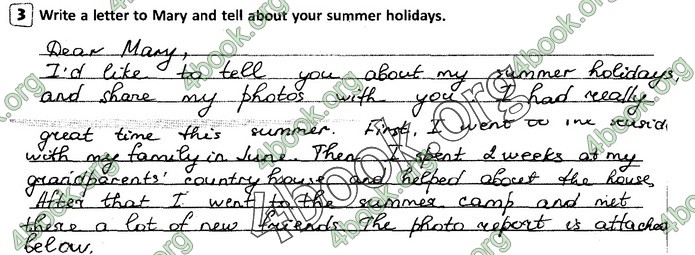 3 Write a letter to Mary and tell about your summer holidays.
Dear Mary,
I'd like to tell you about my summer holidays,
and share my photos with you. I had really
great time this summer. First, I went to the
with my family in June. Then I spent 2 weeks at my
grandparents' country house and helped about the house.
After that I went to the summer camp and met
there a lot of new friends. The photo report is attached
below.
4book.org